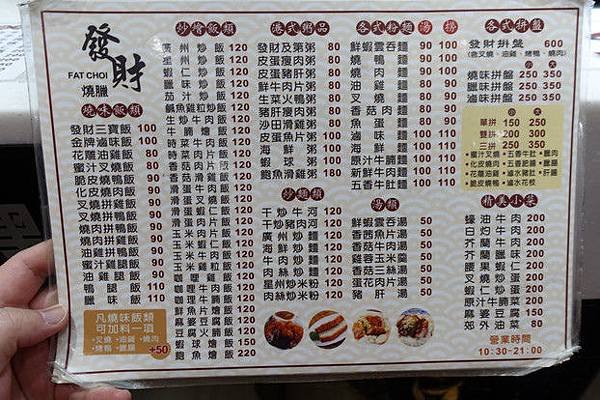 發財
FAT CHOI
燒臘
燒味飯類
發財三寶飯 100
金牌滷味飯 100
花雕油雞飯 80
蜜汁叉燒飯 80
脆皮燒鴨飯 90
化皮燒肉飯 90
叉燒拼雞飯 90
叉燒拼鴨飯 90
燒肉拼鴨飯 90
燒肉拼雞飯 90
油雞拼鴨飯 90
蜜汁雞腿飯 90
油雞腿飯 90
鴨腿飯 110
臘味飯 110
凡燒味飯類
可加料一項
•叉燒•油雞•燒肉
•燒鴨•臘腸
+50
炒燴飯類
廣州炒飯 120
星州炒飯 120
蝦仁炒飯 120
臘味炒飯 120
茄汁炒飯 120
鹹魚雞粒炒飯 120
生炒牛肉飯 120
牛腩燴飯 120
時菜牛肉飯 120
時菜肉片飯 120
滑蛋牛肉飯 120
滑蛋蝦仁飯 120
120
120
玉米蝦仁飯 120
玉米雞粒飯 120
咖哩雞飯 120
咖哩牛肉飯 120
咖哩牛腩飯 120
鮮茄牛肉飯 120
麻婆豆腐飯 120
蝦球燴飯 150
鮑魚燴飯 220
港式粥品
發財及第粥 80
皮蛋瘦肉粥 80
皮蛋豬肝粥 80
鮮牛肉片粥 80
生菜火鴨粥 80
豬肝瘦肉粥 80
沙田滑雞粥 80
皮蛋魚片粥 100
海鮮粥 100
蝦球粥 100
鮑魚滑雞粥 180
炒麵類
干炒牛河 120
干炒豬肉河 120
廣州炒麵 120
海鮮炒麵 120
牛肉炒麵 120
肉絲炒麵 120
星州炒米粉 120
肉絲炒米粉 120
各式粉麵 湯 撈
鮮蝦雲吞麵 90 100
燒肉麵 90 100
燒鴨麵 90 100
油雞麵 80 90
叉燒麵 80 90
香菇肉麵 80 90
魚蛋麵 80 90
滷味麵 100 110
海鮮麵 100 110
原汁牛腩麵 100 110
新鮮牛肉麵 100 110
五香牛肚麵 100 110
湯類
鮮蝦雲吞湯 50
香茜魚片湯 50
香菇牛肉湯 50
雞蓉玉米羹 50
香菇三絲湯 50
蛋花肉片湯 50
豬肝湯 50
各式拼盤
發財拼盤 600
(含叉燒、油雞、燒鴨、燒肉)
小 大
燒味拼盤 250 350
臘味拼盤 250 350
滷味拼盤 250 350
小 大
單拼 150 250
雙拼 200 300
三拼 250 350
•蜜汁叉燒•五香牛肚•臘肉
•化皮燒肉•五香肥腸•臘腸
•花雕油雞•滷水豬肚•肝腸
•脆皮燒鴨•滷水花枝
精美小菜
蠔油牛肉 200
白灼牛肉 200
芥蘭牛肉 200
芥蘭臘味 200
腰果蝦仁 200
叉燒炒蛋 200
蝦仁炒蛋 200
原汁牛腩 200
麻婆豆腐 150
郊外油菜 80
營業時間
10:30-21:00